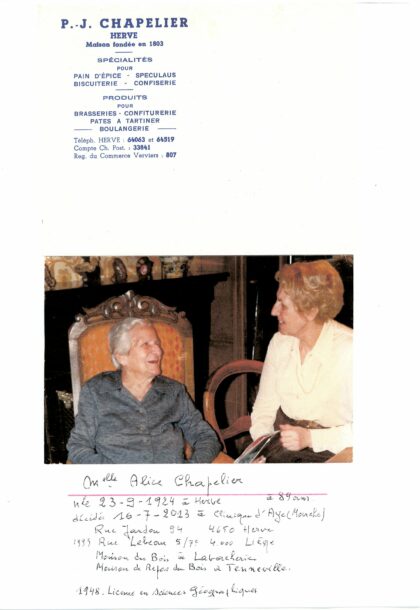 P.-J. CHAPELIER
HERVE
Maison fondée en 1803
SPÉCIALITÉS
POUR
PAIN D'ÉPICE - SPECULAUS
BISCUITERIE - CONFISERIE
PRODUITS
POUR
BRASSERIES - CONFITURERIE
PATES A TARTINER
BOULANGERIE
Téléph. HERVE : 64063 et 64519
Compte Ch. Post. : 33841
Reg. du Commerce Verviers : 807
Melle Alice Chapelier
née 23-9-1924 à Herve à 89 ans
décédée 16-7-2013 à Clinique d'Aye (Marche)
Rue Jardon 94 4650 Herve
Rue Lebeau 5/7 4000 Liège
Maison du Bois à
Maison de Repos du Bois à Tenneville.
1948. Licence en Sciences Géographiques